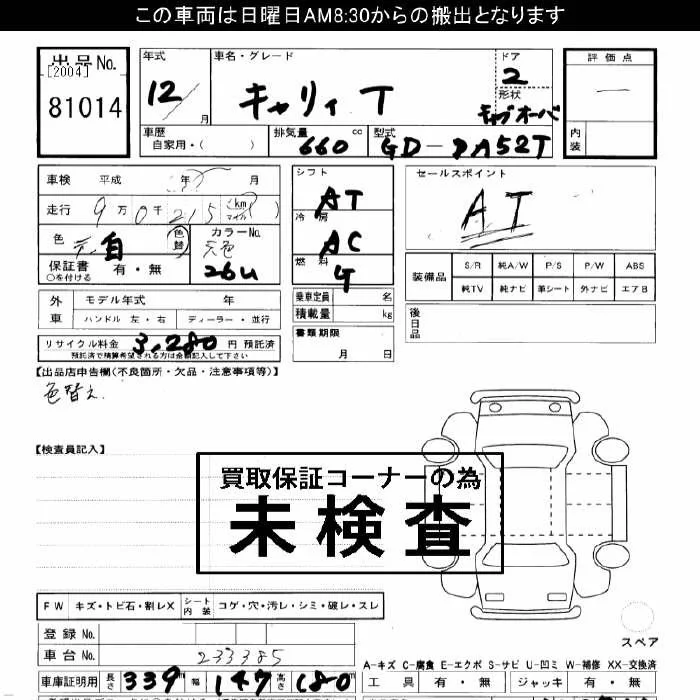 この車両は日曜日AM8:30からの搬出となります
出品No.
[2004]
81014
年式
12/ 月
車名・グレード
キャリィ T
ドア
2
形状
キャブオーバ
評価点
—
内装
車歴
自家用・( )
排気量
660 cc
型式
GD-DA52T
車検 平成 年 月
走行 9万0千215 (km マイル)
色 元 白 色替
カラーNo.
元色
26U
保証書 有・無
○を付ける
シフト
AT
冷房
AC
燃料
G
セールスポイント
AT
装備品 S/R 純A/W P/S P/W ABS
純TV 純ナビ 革シート 外ナビ エアB
外車 モデル年式 年
ハンドル 左・右 ディーラー・並行
乗車定員 名
積載量 kg
後日品
リサイクル料金 3,280 円 預託済
預託済で精算希望される方は金額記入して下さい
書類期限
月 日
【出品店申告欄(不良箇所・欠品・注意事項等)】
色替え
【検査員記入】
買取保証コーナーの為
未検査
FW キズ・トビ石・割レX シート内装 コゲ・穴・汚レ・シミ・破レ・スレ
登録No.
車台No. 233385
スペア
A-キズ C-腐食 E-エクボ S-サビ U-凹ミ W-補修 XX-交換済
車庫証明用 長さ 339 幅 147 高さ 180
工具 有・無 ジャッキ 有・無